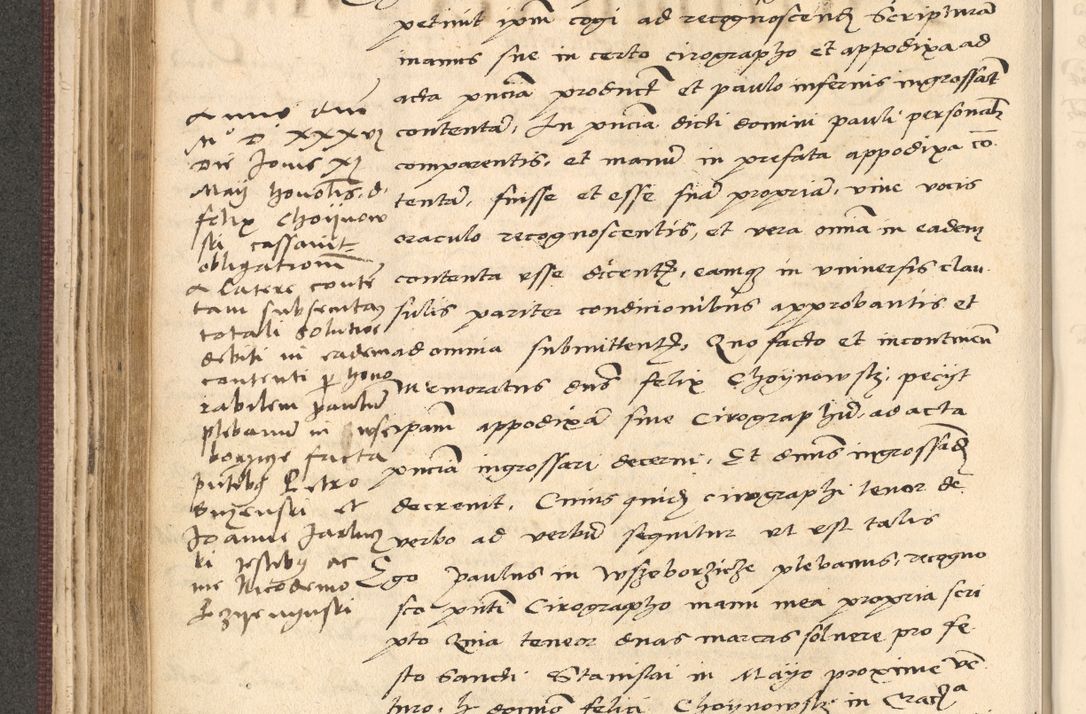 petivit ipm cogi ad recognoscend Scripturam
manus sue in certo cirographo et appodixa ad
acta pncia product et paulo inferius ingrossat
contentam, In pncia dicti domini pauli personal
comparentis, et manum in prefata appodixa con
tentam, fuisse et esse suam propriam, vive vocis
oraculo recognoscentis, et vera omia in eadem
contenta esse dicent, eamq in universis clau
sulis pariter condicionibus approbantis et
ad omnia submittent, Quo facto et incontinen
Memoratus dns felix Choynowski, peciit
ipam appodixam sive Cirographum, ad acta
pncia ingrossari decerni, Et dnus ingrossand
decrevit, Cuius quid cirographi tenor de
verbo ad verbum sequitur et est talis
Ego paulus in Wszeborzicze plebanus, recogno
sco pnti Cirographo manu mea propria scri
pto Quia teneor duas marcas solvere pro fe
sto Sancti Stanislai in Mayo proxime ven
turo, domino felici Choynowski in Crac
Anno dni
M D XXXVI
Die Jovis XI
Maij honolis, d
felix Choijnow
ski cassavit
obligationem
a latere conten
tam subsecuta
totali solutioe
debiti in eadem
contenti p hono
rabilem paulum
plebanum in Wsze
borzyce facta
pntibus Petro
et
Joanne
ki testibus ac
me Nicodemo